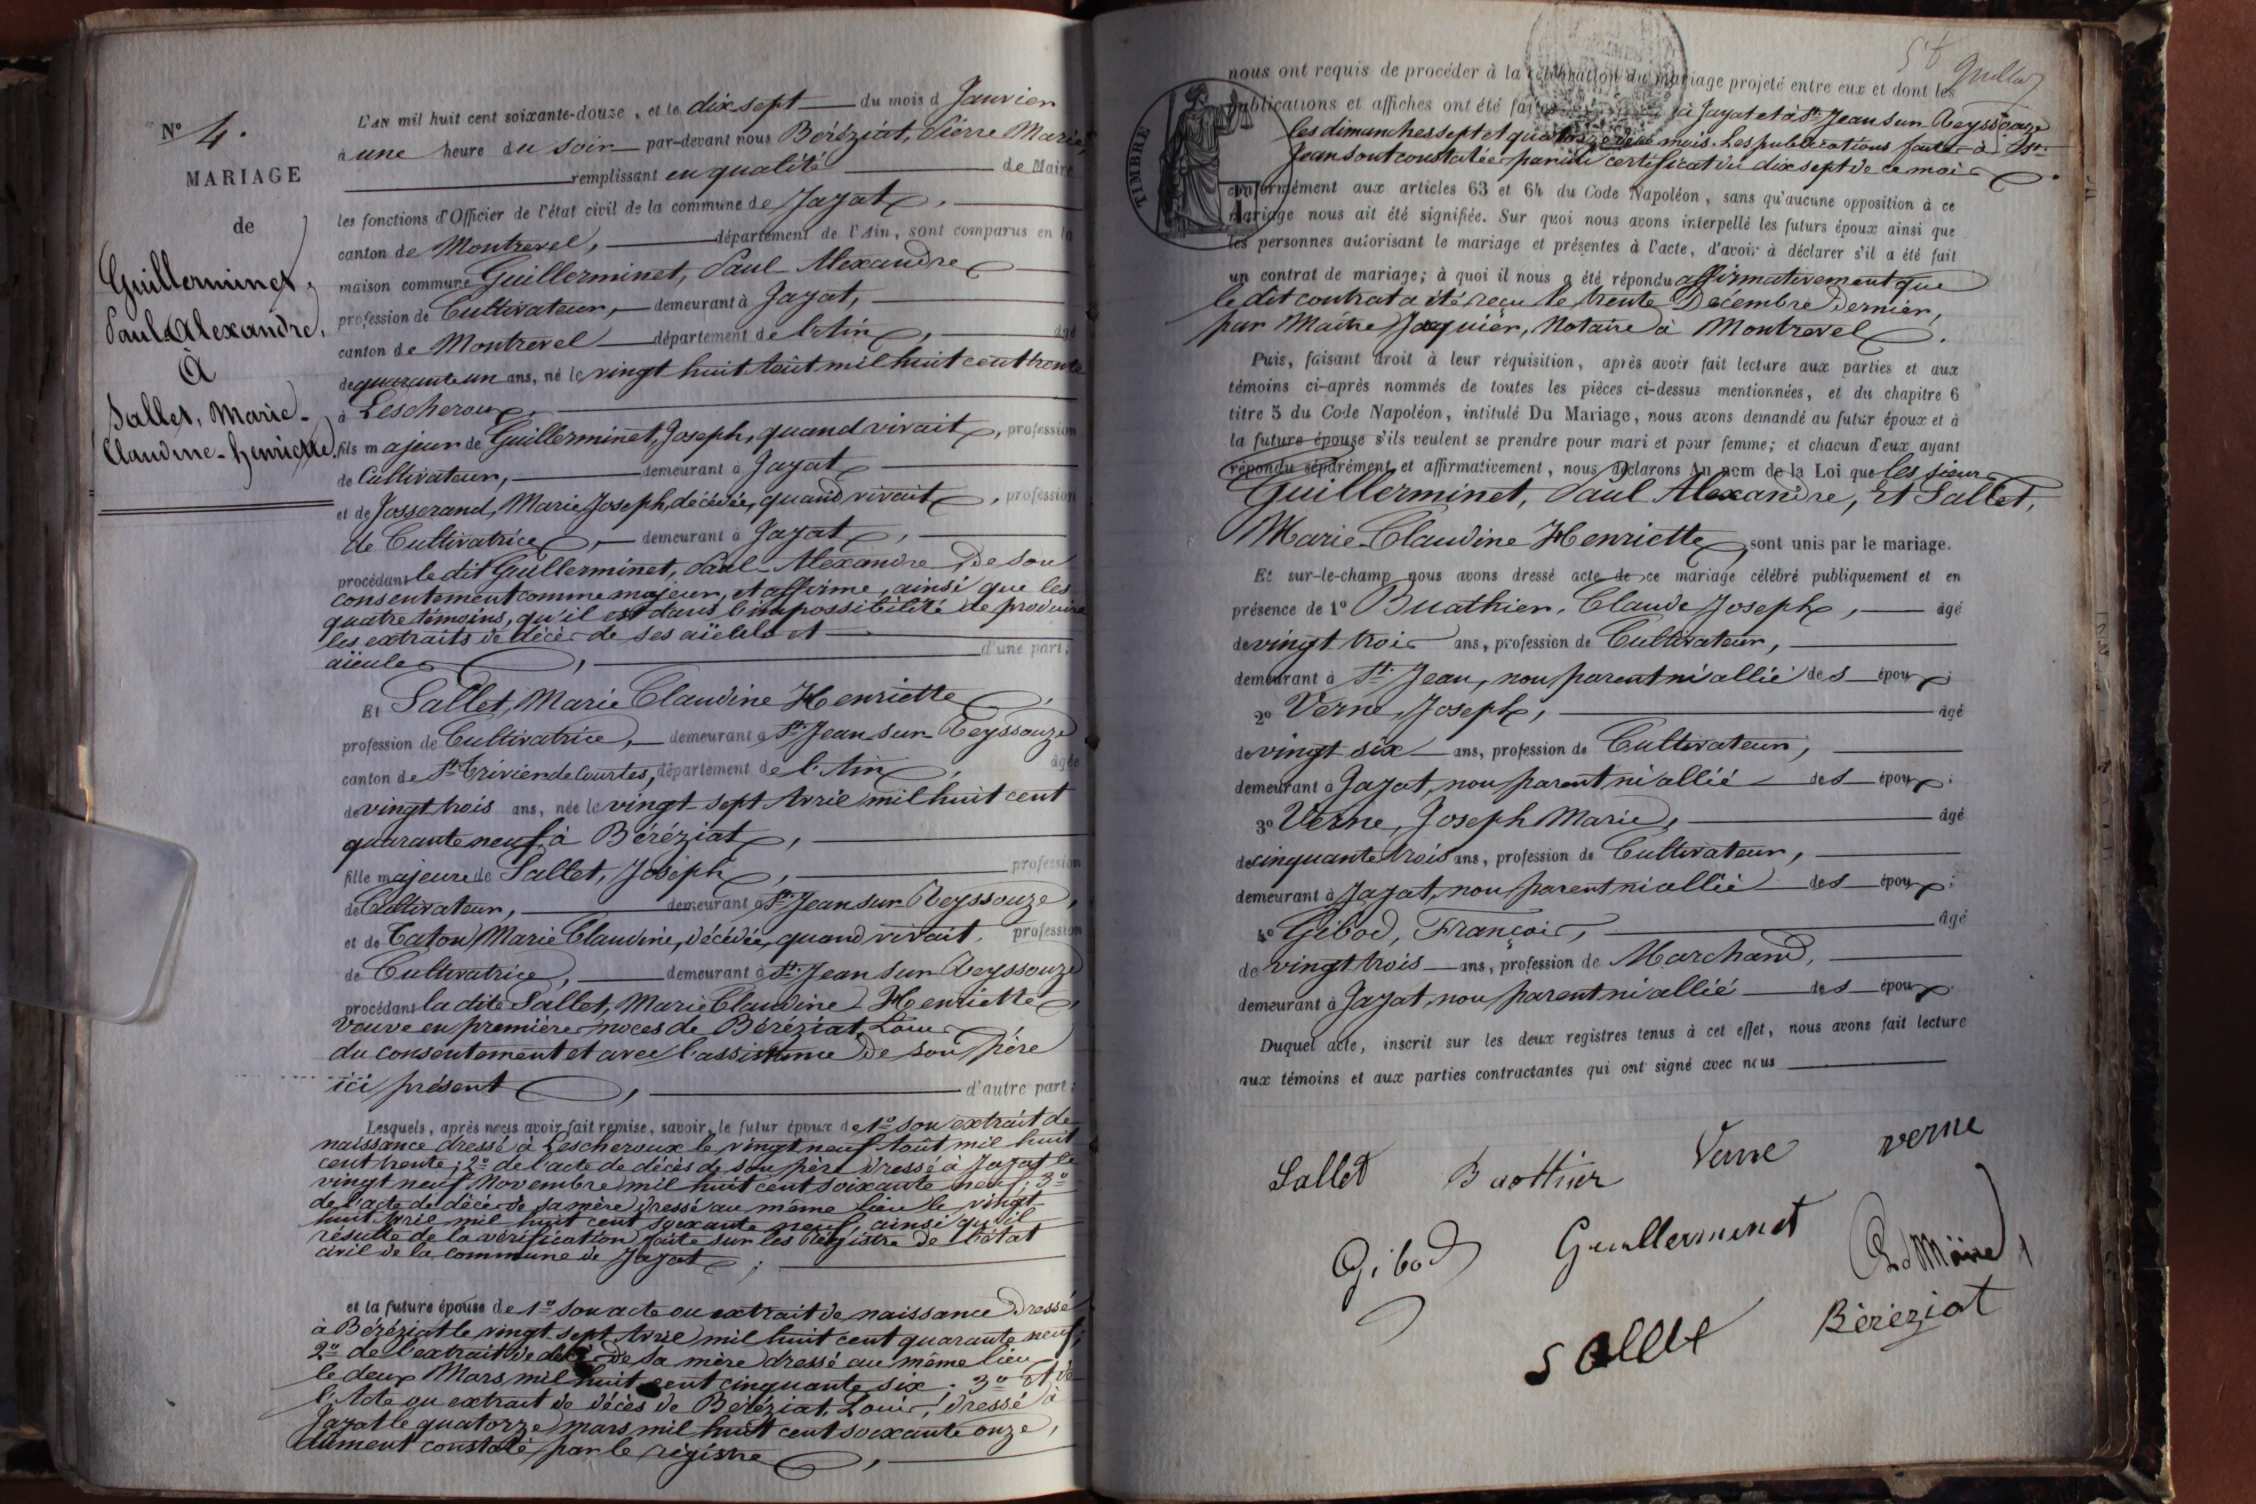 N° 4.
MARIAGE
de
Guillerminet,
Paul Alexandre,
À
Sallet, Marie-
Claudine-henriette.
L'AN mil huit cent soixante-douze, et le dix sept du mois d Janvier
à une heure du soir par-devant nous Béréziat, Pierre Marie,
remplissant en qualité de Maire
les fonctions d'Officier de l'état civil de la commune de Jayat,
canton de Montrevel, département de l'Ain, sont comparus en la
maison commune Guillerminet, Paul Alexandre
profession de Cultivateur, demeurant à Jayat,
canton de Montrevel département de l'Ain, âgé
de quarante un ans, né le vingt huit Août mil huit cent trente
à Lescheroux,
fils majeur de Guillerminet, Joseph, quand vivait, profession
de Cultivateur, demeurant à Jayat
et de Josserand, Marie Joseph, décédée, quand vivait, profession
de Cultivatrice, demeurant à Jayat,
procédant le dit Guillerminet, Paul Alexandre de son
consentement comme majeur, et affirme, ainsi que les
quatre témoins, qu'il est dans l'impossibilité de produire
les extraits de décès de ses aïeuls et
aïeules, d'une part;
Et Sallet, Marie Claudine Henriette,
profession de Cultivatrice, demeurant à St Jean sur Reyssouze
canton de St Trivier de Courtes, département de l'Ain, âgée
de vingt trois ans, née le vingt sept Avril mil huit cent
quarante neuf à Béréziat,
fille majeure de Sallet, Joseph, profession
de Cultivateur, demeurant à St Jean sur Reyssouze,
et de Caton Marie Claudine, décédée, quand vivait, profession
de Cultivatrice, demeurant à St Jean sur Reyssouze
procédant la dite Sallet, Marie Claudine Henriette,
veuve en première noces de Béréziat, Louis
du consentement et avec l'assistance de son père
ici présent, d'autre part:
Lesquels, après nous avoir fait remise, savoir, le futur époux de 1° son extrait de
naissance dressé à Lescheroux le vingt neuf Août mil huit
cent trente; 2° de l'acte de décès de son père dressé à Jayat le
vingt neuf Novembre mil huit cent soixante neuf; 3°
de l'acte de décès de sa mère dressé au même lieu le vingt
huit Avril mil huit cent soixante neuf, ainsi qu'il
résulte de la vérification faite sur les Registre de l'état
civil de la commune de Jayat;
et la future épouse de 1° son acte ou extrait de naissance dressé
à Béréziat le vingt sept Avril mil huit cent quarante neuf;
2° de l'extrait de décès de sa mère dressé au même lieu
le deux Mars mil huit cent cinquante six; 3° et de
l'Acte ou extrait de décès de Béréziat, Louis, dressé à
Jayat le quatorze mars mil huit cent soixante onze,
dûment constaté par le régistre,
nous ont requis de procéder à la célébration du mariage projeté entre eux et dont les
publications et affiches ont été faites à Jayat et à St Jean sur Reyssouze
les dimanches sept et quatorze de ce mois. Les publications faites à St
Jean sont constatées par un certificat du dix sept de ce mois.
TIMBRE
conformément aux articles 63 et 64 du Code Napoléon, sans qu'aucune opposition à ce
mariage nous ait été signifiée. Sur quoi nous avons interpellé les futurs époux ainsi que
les personnes autorisant le mariage et présentes à l'acte, d'avoir à déclarer s'il a été fait
un contrat de mariage; à quoi il nous a été répondu affirmativement que
le dit contrat a été reçu le trente Décembre dernier,
par Maître Jaquier, Notaire à Montrevel.
Puis, faisant droit à leur réquisition, après avoir fait lecture aux parties et aux
témoins ci-après nommés de toutes les pièces ci-dessus mentionnées, et du chapitre 6
titre 5 du Code Napoléon, intitulé Du Mariage, nous avons demandé au futur époux et à
la future épouse s'ils veulent se prendre pour mari et pour femme; et chacun d'eux ayant
répondu séparément et affirmativement, nous déclarons Au nom de la Loi que les sieur
Guillerminet, Paul Alexandre, Et Sallet,
Marie Claudine Henriette, sont unis par le mariage.
Et sur-le-champ nous avons dressé acte de ce mariage célébré publiquement et en
présence de 1° Buathier, Claude Joseph, âgé
de vingt trois ans, profession de Cultivateur,
demeurant à St Jean, non parent ni allié des époux;
2° Verne, Joseph, âgé
de vingt six ans, profession de Cultivateur,
demeurant à Jayat, non parent ni allié des époux;
3° Verne, Joseph Marie, âgé
de cinquante trois ans, profession de Cultivateur,
demeurant à Jayat, non parent ni allié des époux;
4° Gibod, François, âgé
de vingt trois ans, profession de Marchand,
demeurant à Jayat, non parent ni allié des époux.
Duquel acte, inscrit sur les deux registres tenus à cet effet, nous avons fait lecture
aux témoins et aux parties contractantes qui ont signé avec nous
Sallet Buathier Verne verne
Gibod Guillerminet Maire
Sallet Béréziat